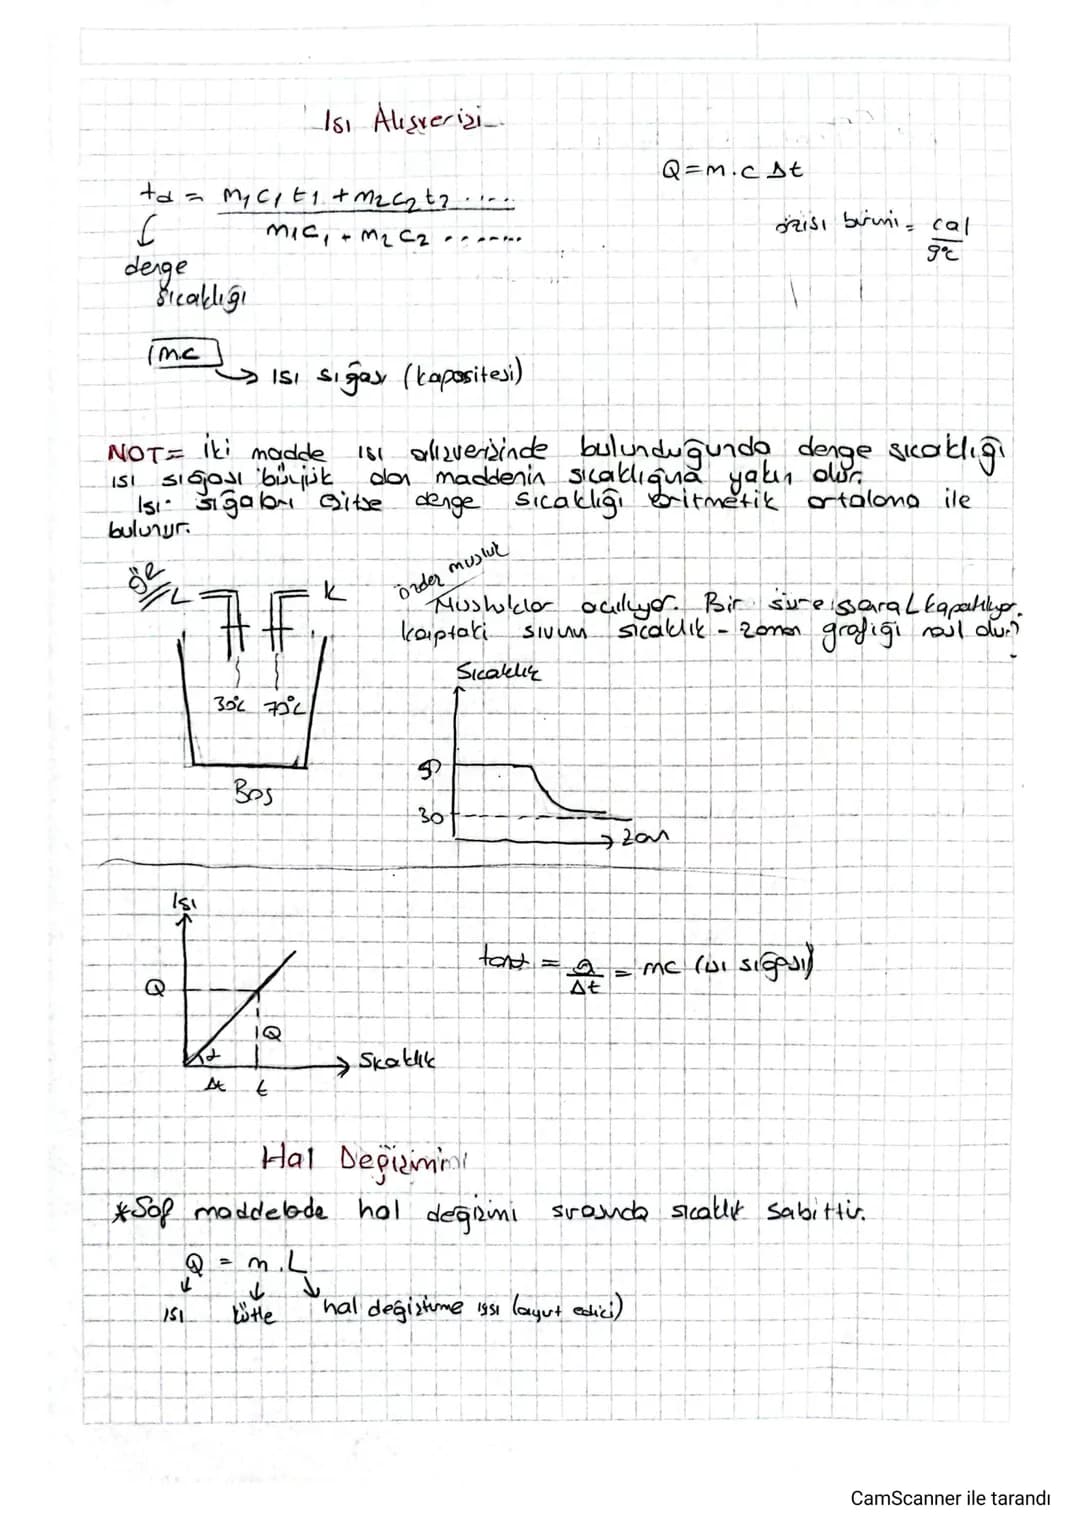 Isı Alışverişi
Q=m.c Δt
td = m1c1t1 + m2c2t2 ......
m1c1 + m2c2 .......
özısı birimi = cal
g°c
denge
sıcaklığı
m.c
→ ısı sığası (kapasitesi)
NOT= İki madde ısı alışverişinde bulunduğunda denge sıcaklığı
ısı sığası büyük olan maddenin sıcaklığına yakın olur.
Isı sığaları eşitse denge sıcaklığı aritmetik ortalama ile
bulunur.
ör
L K
özdeş musluk
Musluklar açılıyor. Bir süre sonra L kapatılıyor.
kaptaki sıvının sıcaklık - zaman grafiği nasıl olur?
Sıcaklık
30°c 70°c
50
Boş
30
→ zaman
Isı
tanα = Q = mc (ısı sığası)
Δt
Q
Q
α
→ Sıcaklık
Δt t
Hal Değişimi
*Saf maddelerde hal değişimi sırasında sıcaklık sabittir.
Q = m.L
ısı kütle hal değiştirme ısısı (ayırt edici)
CamScanner ile tarandı